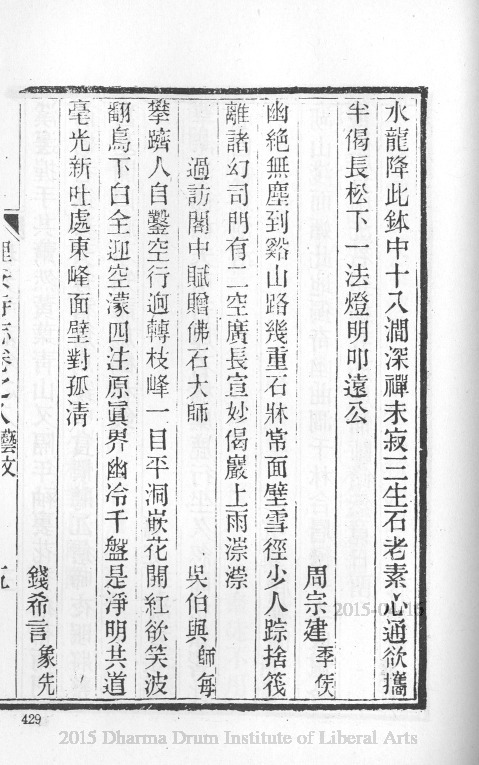 水龍降此鉢中十入澗深禪未寂三生石老素心通欲攜
半偈長松下一法燈明叩遠公
周宗建季侯
幽絶無塵到谿山路幾重石牀常面壁雪徑少人踪捨筏
離諸幻司門有二空廣長宣妙偈巖上雨濛濛
過訪閣中賦贈佛石大師
吳伯與師每
攀躋人自鑿空行迥轉枝峰一目平洞嵌花開紅欲笑波
翻鳥下白全迎空濛四注原眞界幽冷千盤是淨明共道
毫光新吐處東峰面壁對孤淸
錢希言象先
理安寺志卷之八藝文
五
429
2015-01-16
2015 Dharma Drum Institute of Liberal Arts